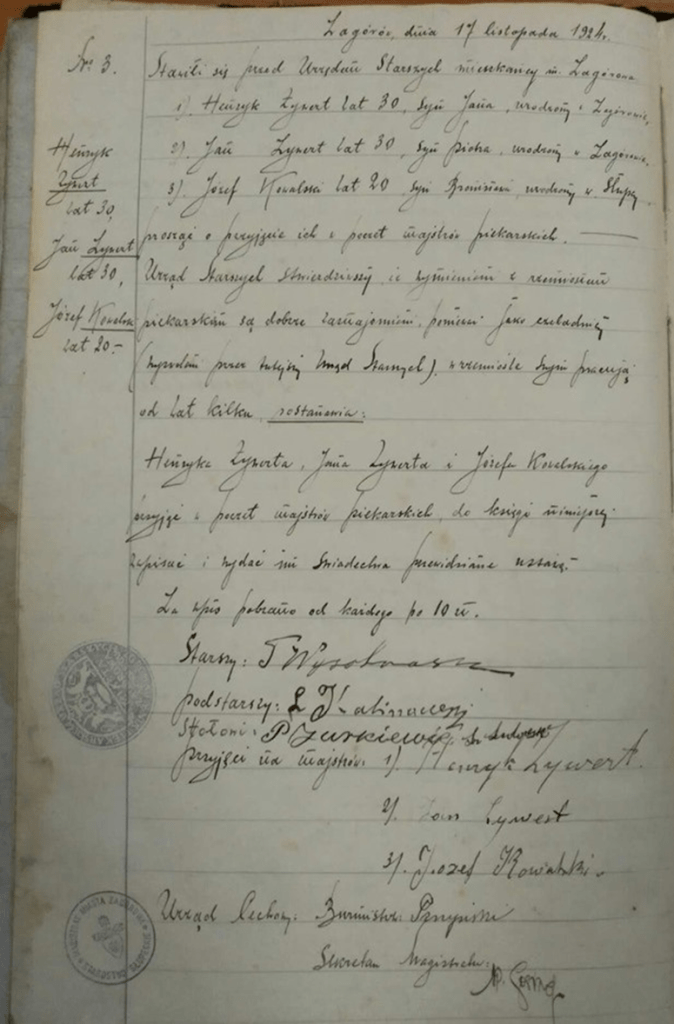 Zagórów, dnia 17 listopada 1924r.
Nr. 3.
Stawili się przed Urzędem Starszych mieszkańcy m. Zagórowa
1). Henryk Zywert lat 30, syn Jana, urodzony w Zagórowie,
2). Jan Zywert lat 30, syn Piotra, urodzony w Zagórowie,
3). Józef Kowalski lat 20, syn urodzony w Słupcy
prosząc o przyjęcie ich w poczet majstrów piekarskich.
Urząd Starszych stwierdziwszy, iż wymienieni z rzemiosłem
piekarskim są dobrze zaznajomieni, ponieważ jako czeladnicy
(wyzwoleni przez tutejszy Urząd Starszych), w rzemiośle swym pracują
od lat kilku, postanawia:
Henryk
Zywert
lat 30,
Jan Zywert
lat 30,
Józef Kowalski
lat 20.-
Henryka Zywerta, Jana Zywerta i Józefa Kowalskiego
przyjąć w poczet majstrów piekarskich, do księgi niniejszej
zapisać i wydać im świadectwa przewidziane ustawą.-
Za wpis pobrano od każdego po 10 zł.
Starszy:
podstarszy: Kalinowski
Stołowi: P Żurkiewicz
przyjęci na majstrów: 1). Henryk Zywert.
2). Jan Zywert
3). Jozef Kowalski.
Urząd Cechowy: Burmistrz:
Sekretarz Magistratu: